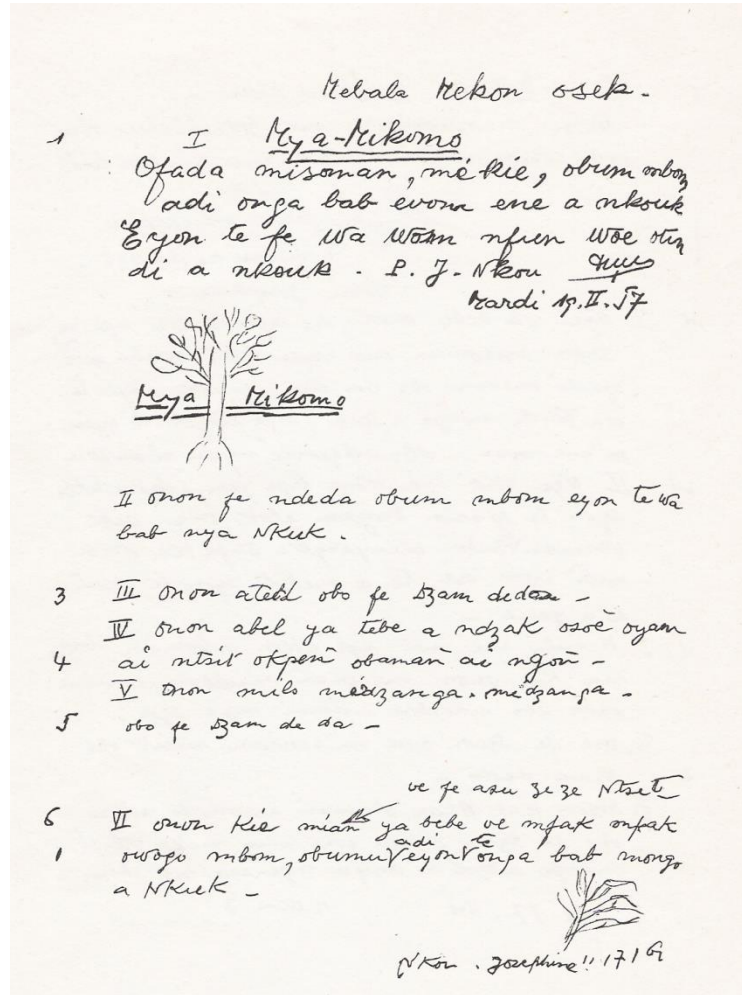 Mebala Mekon osek.
1 I Mya-Mikomo
Ofada misoman, mé kie, obum mbom
adi onga bab evom ene a nkouk
Eyon te fe wa woam nfun woe
di a nkouk. P. J. Nkou
Mardi 19.II.57
Mya Mikomo
II onon fe ndeda obum mbom eyon te wa
bab nya Nkuk.
3 III onon atebl obo fe dzam dedan -
IV onon abel ya tebe a ndzak osoè oyam
4 ai ntsit okpeñ obaman ai ngon -
V onon milo médzanga. médzanga -
5 obo fe dzam de da -
ve fe asu zeze Ntsete
6 VI onon kie mian ya bebe ve mfak mfak
1 owogo mbom, obumu adi eyon te onga bab mongo
a Nkuk -
Nkou. Josephine!! 17/